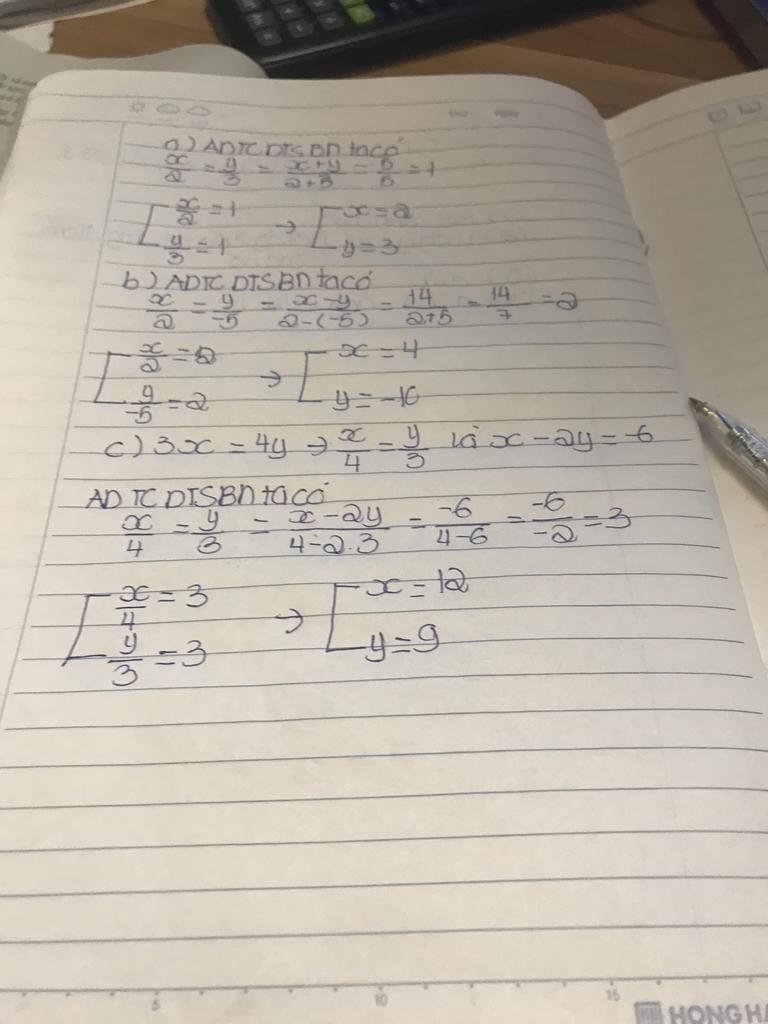 a) ADTCDTSBN ta có
x/2 = y/3 = x+y/2+3 = 5/5 = 1
x/2 = 1 → x = 2
y/3 = 1 y = 3
b) ADTCDTSBN ta có
x/2 = y/-5 = x-y/2-(-5) = 14/2+5 = 14/7 = 2
x/2 = 2 → x = 4
y/-5 = 2 y = -10
c) 3x = 4y → x/4 = y/3 và x - 2y = -6
ADTCDTSBN ta có
x/4 = y/3 = x-2y/4-2.3 = -6/4-6 = -6/-2 = 3
x/4 = 3 → x = 12
y/3 = 3 y = 9
5 10 15
HONG HA